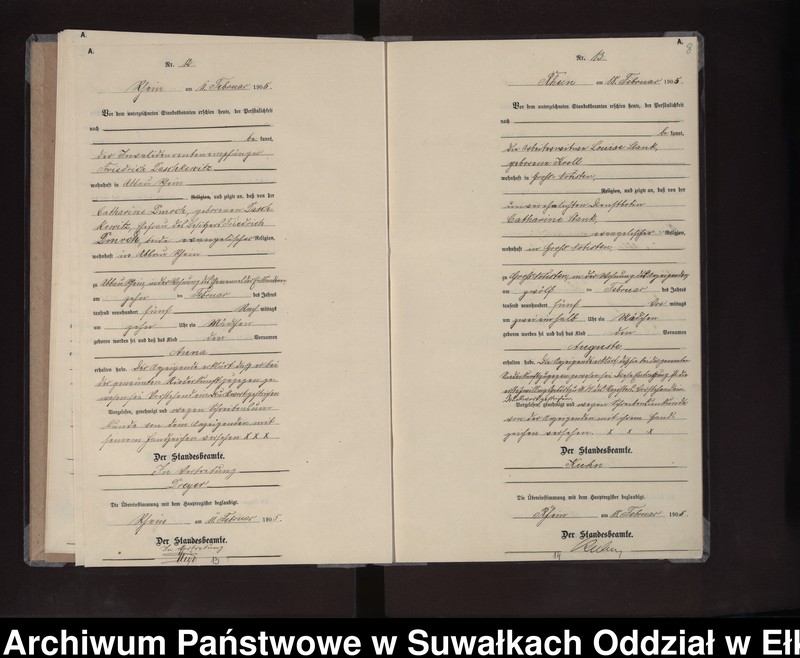 A.
A.
Nr. 12
Rhein am 11. Februar 1905.
Vor dem unterzeichneten Standesbeamten erschien heute, der Persönlichkeit
nach
be kannt,
der Invalidenrentenempfänger
Friedrich
wohnhaft in Abbau Rhein
Religion, und zeigte an, daß von der
Catharina Dmoch, geborenen
Ehefrau des Besitzers Friedrich
Dmoch, beide evangelischer Religion,
wohnhaft in Abbau Rhein
zu Abbau Rhein, in der Wohnung des
am zehn ten Februar des Jahres
tausend neunhundert fünf Nach mittags
um zehn Uhr ein Mädchen
geboren worden sei und daß das Kind den Vornamen
Anna
erhalten habe. Der Anzeigende erklärt, daß er bei
der genannten Niederkunft zugegen ge-
wesen sei. Vorstehend
Vorgelesen, genehmigt und wegen Schreibensun-
kunde von dem Anzeigenden mit
seinem Handzeichen versehen x x x
Der Standesbeamte.
In Vertretung
Dreyer
Die Übereinstimmung mit dem Hauptregister beglaubigt.
Rhein am 11. Februar 1905.
Der Standesbeamte.
In Vertretung
A.
8
Nr. 13
Rhein am 18. Februar 1905.
Vor dem unterzeichneten Standesbeamten erschien heute, der Persönlichkeit
nach
be kannt,
die Arbeiterwitwe Louise Wank,
geborene Kroll
wohnhaft in Groß
Religion, und zeigte an, daß von der
unverehelichten Dienstboten
Catharine Wank,
evangelischer Religion,
wohnhaft in Groß
zu Groß in der Wohnung der Anzeigenden
am zwölf ten Februar des Jahres
tausend neunhundert fünf Vor mittags
um zwei einhalb Uhr ein Mädchen
geboren worden sei und daß das Kind den Vornamen
Auguste
erhalten habe. Die Anzeigende erklärt, daß sie bei der genannten
Niederkunft zugegen gewesen sei.
Vorgelesen, genehmigt und wegen Schreibensunkunde
von der Anzeigenden mit ihrem Hand-
zeichen versehen. x x x
Der Standesbeamte.
Kuhn
Die Übereinstimmung mit dem Hauptregister beglaubigt.
Rhein am 18. Februar 1905.
Der Standesbeamte.
Kuhn
Archiwum Państwowe w Suwałkach Oddział w Ełk